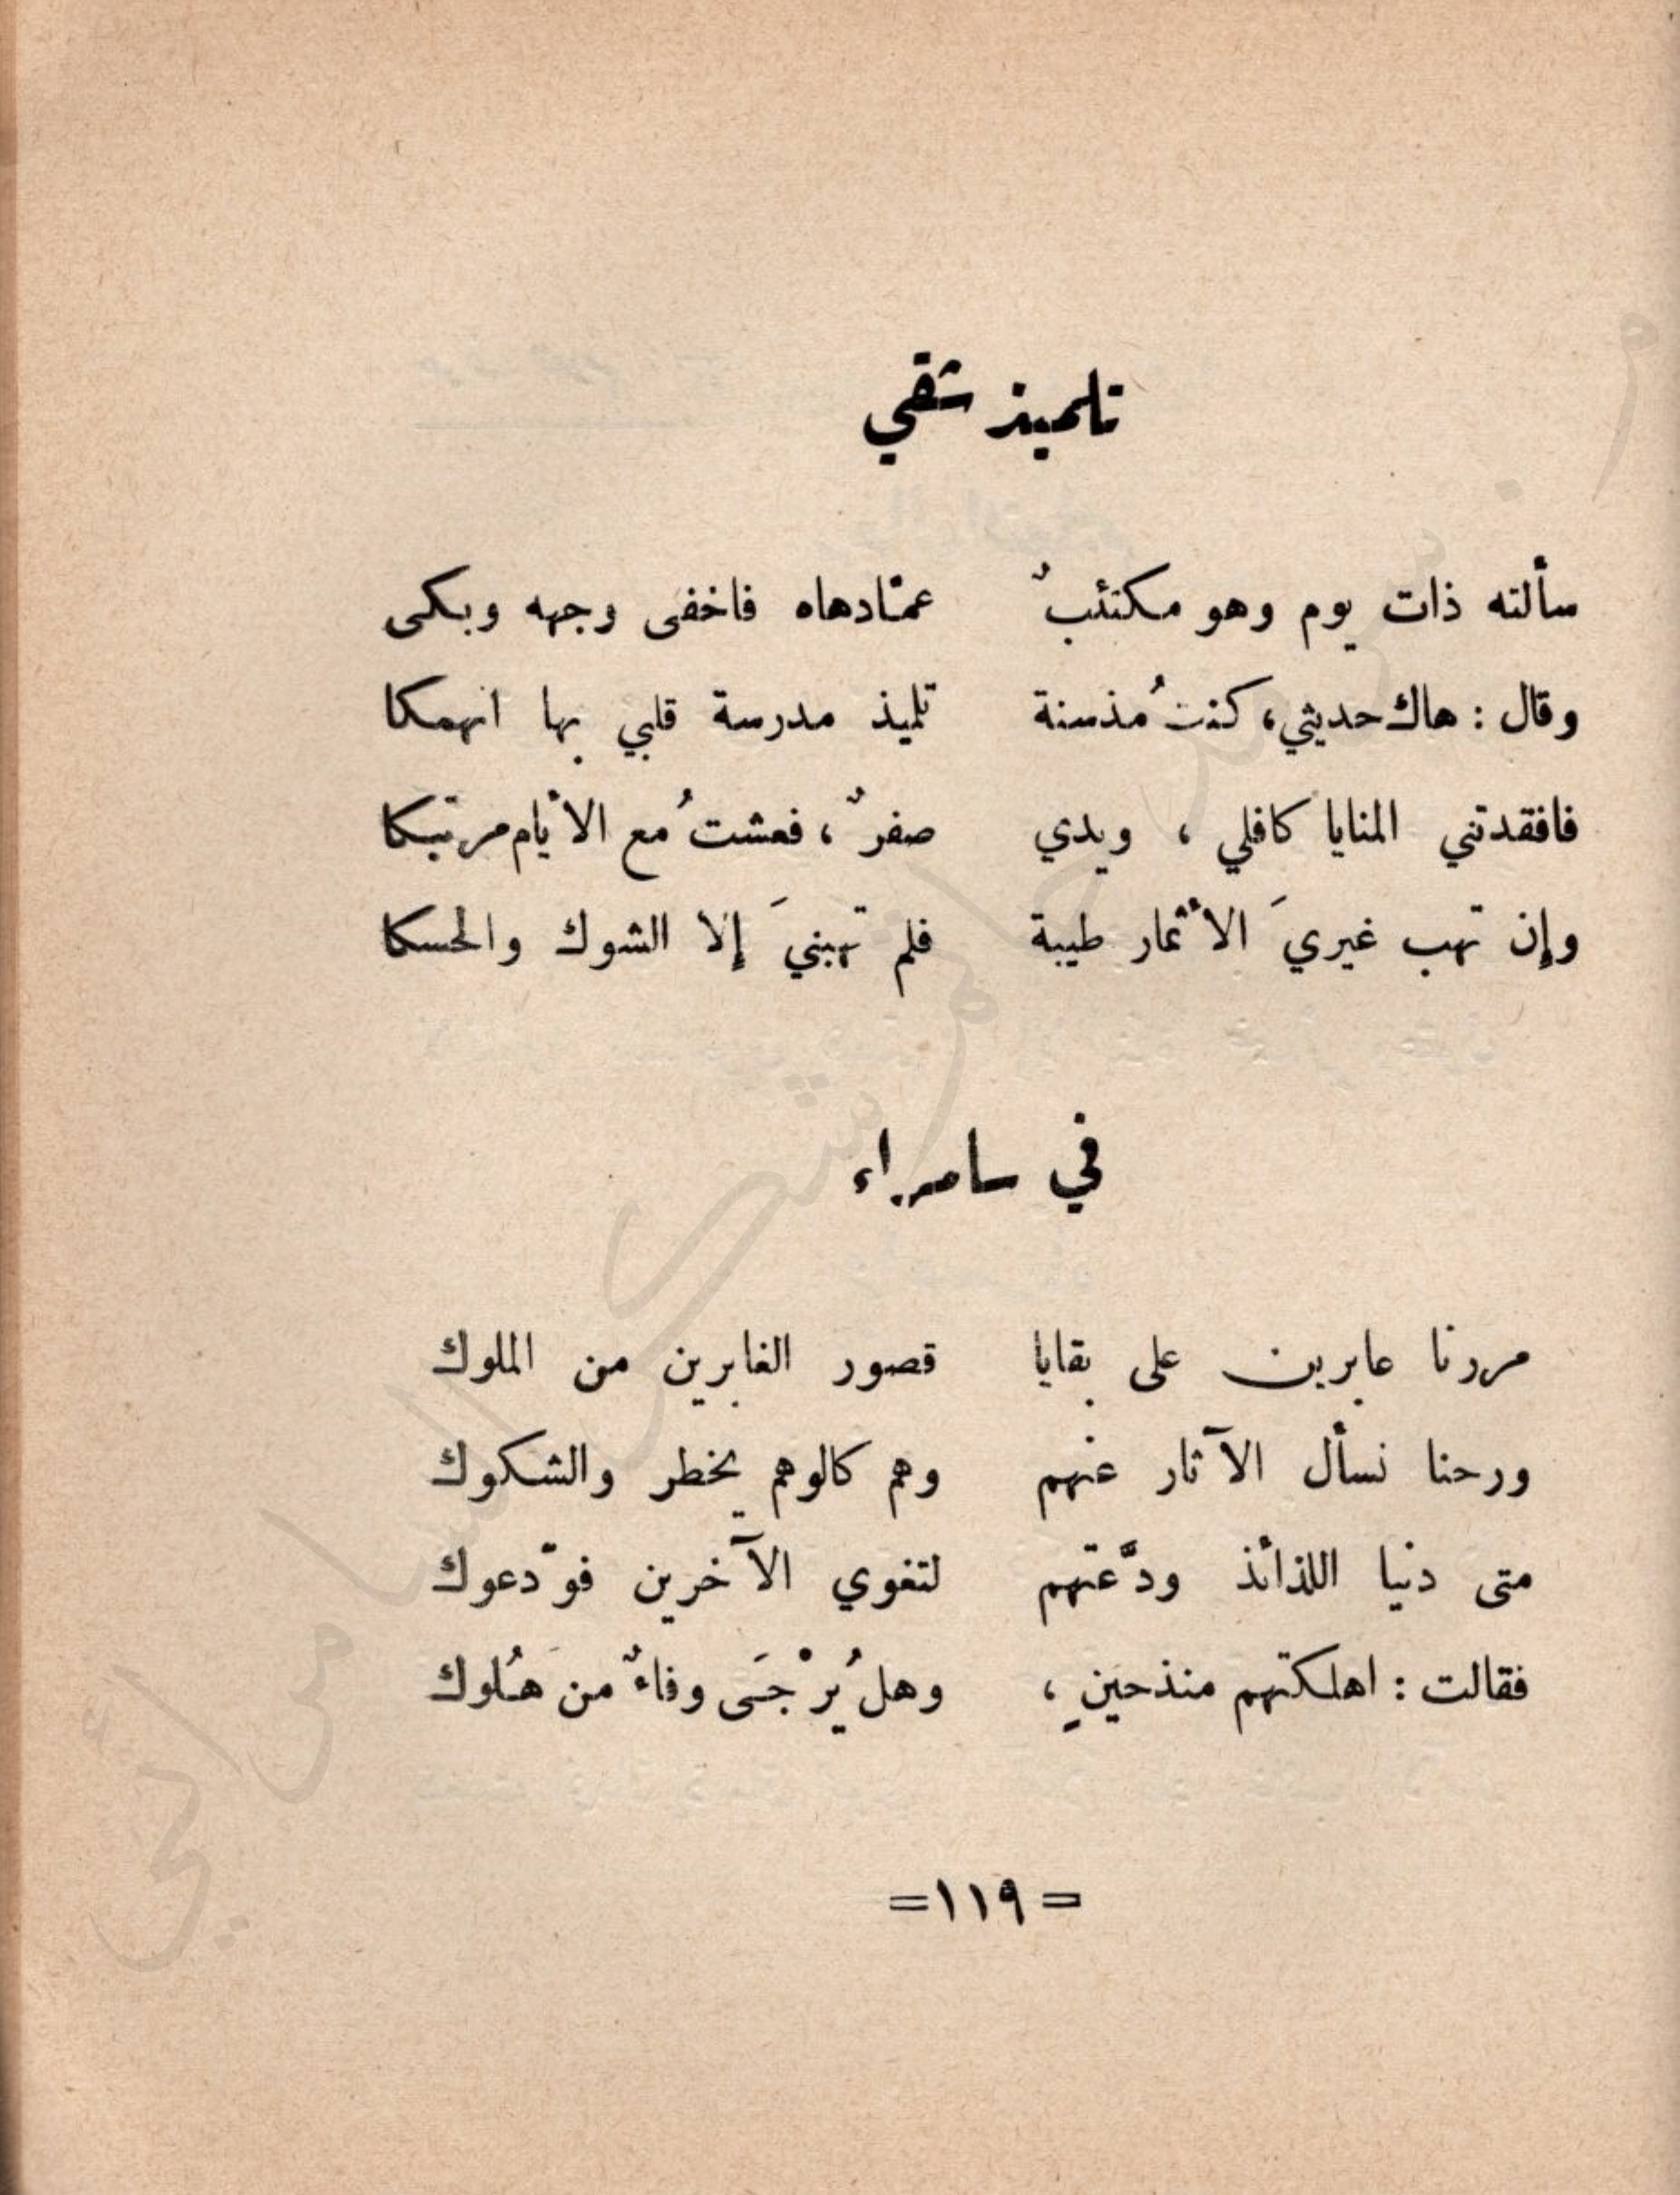 تلميذ شقي
سألته ذات يوم وهو مكتئبٌ عمّادهاه فاخفى وجهه وبكى
وقال : هاك حديثي، كنتُ مذ سنة تلميذ مدرسة قلبي بها انهمكا
فافقدتني المنايا كافلي ، ويدي صفرٌ ، فعشتُ مع الأيام مرتبكا
وإن تهب غيريَ الأثمار طيبة فلم تهبنيَ إلا الشوك والحسكا
في سامراء
مررنا عابرين على بقايا قصور الغابرين من الملوك
ورحنا نسأل الآثار عنهم وهم كالوهم يخطر والشكوك
متى دنيا اللذائذ ودَّعتهم لتغوي الآخرين فودّعوك
فقالت : اهلكتهم منذ حينٍ ، وهل يُرْجَى وفاءٌ من هَلوك
=١١٩=
م. سرمد حاتم شكر السامرائي